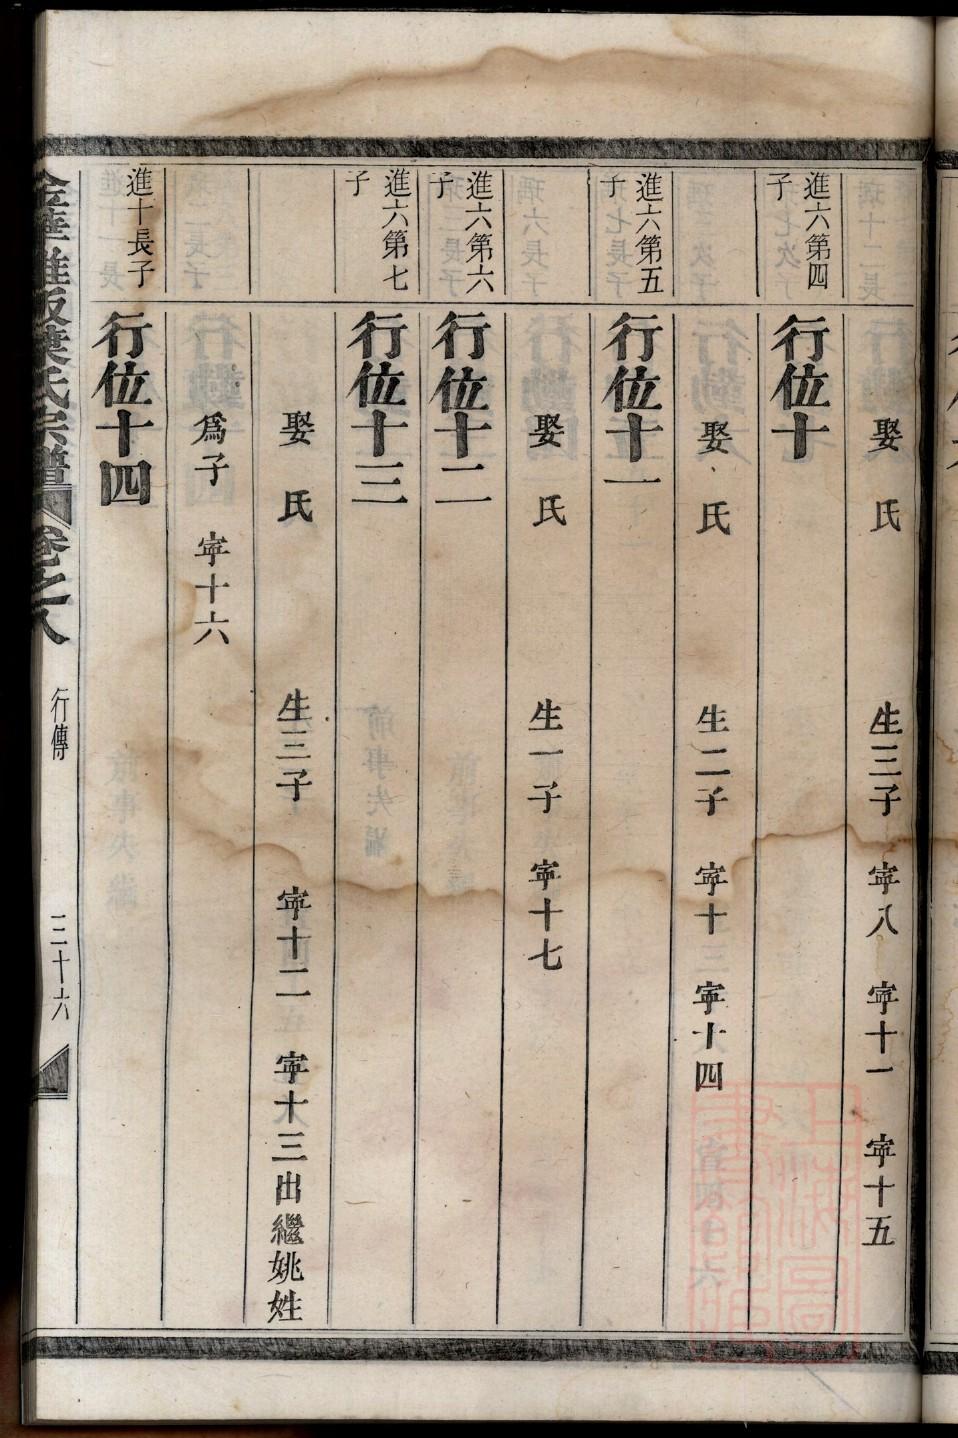 娶 氏 生三子 寕八 寕十一 寕十五
進六第四子
行位十
娶 氏 生二子 寕十三 寕十四
進六第五子
行位十一
娶 氏 生一子 寕十七
進六第六子
行位十二
進六第七子
行位十三
娶 氏 生三子 寕十二 寕十三出繼姚姓
爲子 寕十六
進十長子
行位十四
葉氏宗譜 卷之八 行傳 三十六